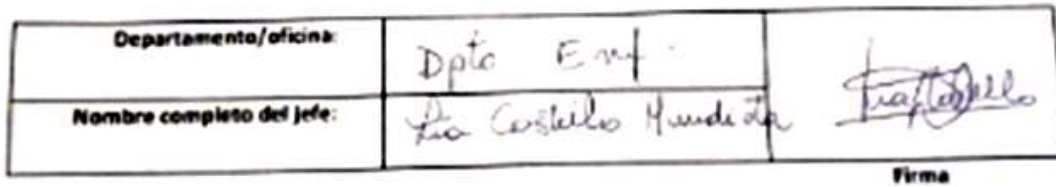 Departamento/oficina: Dpto Enf.
Nombre completo del jefe: Lia Castello Mundiota
Firma